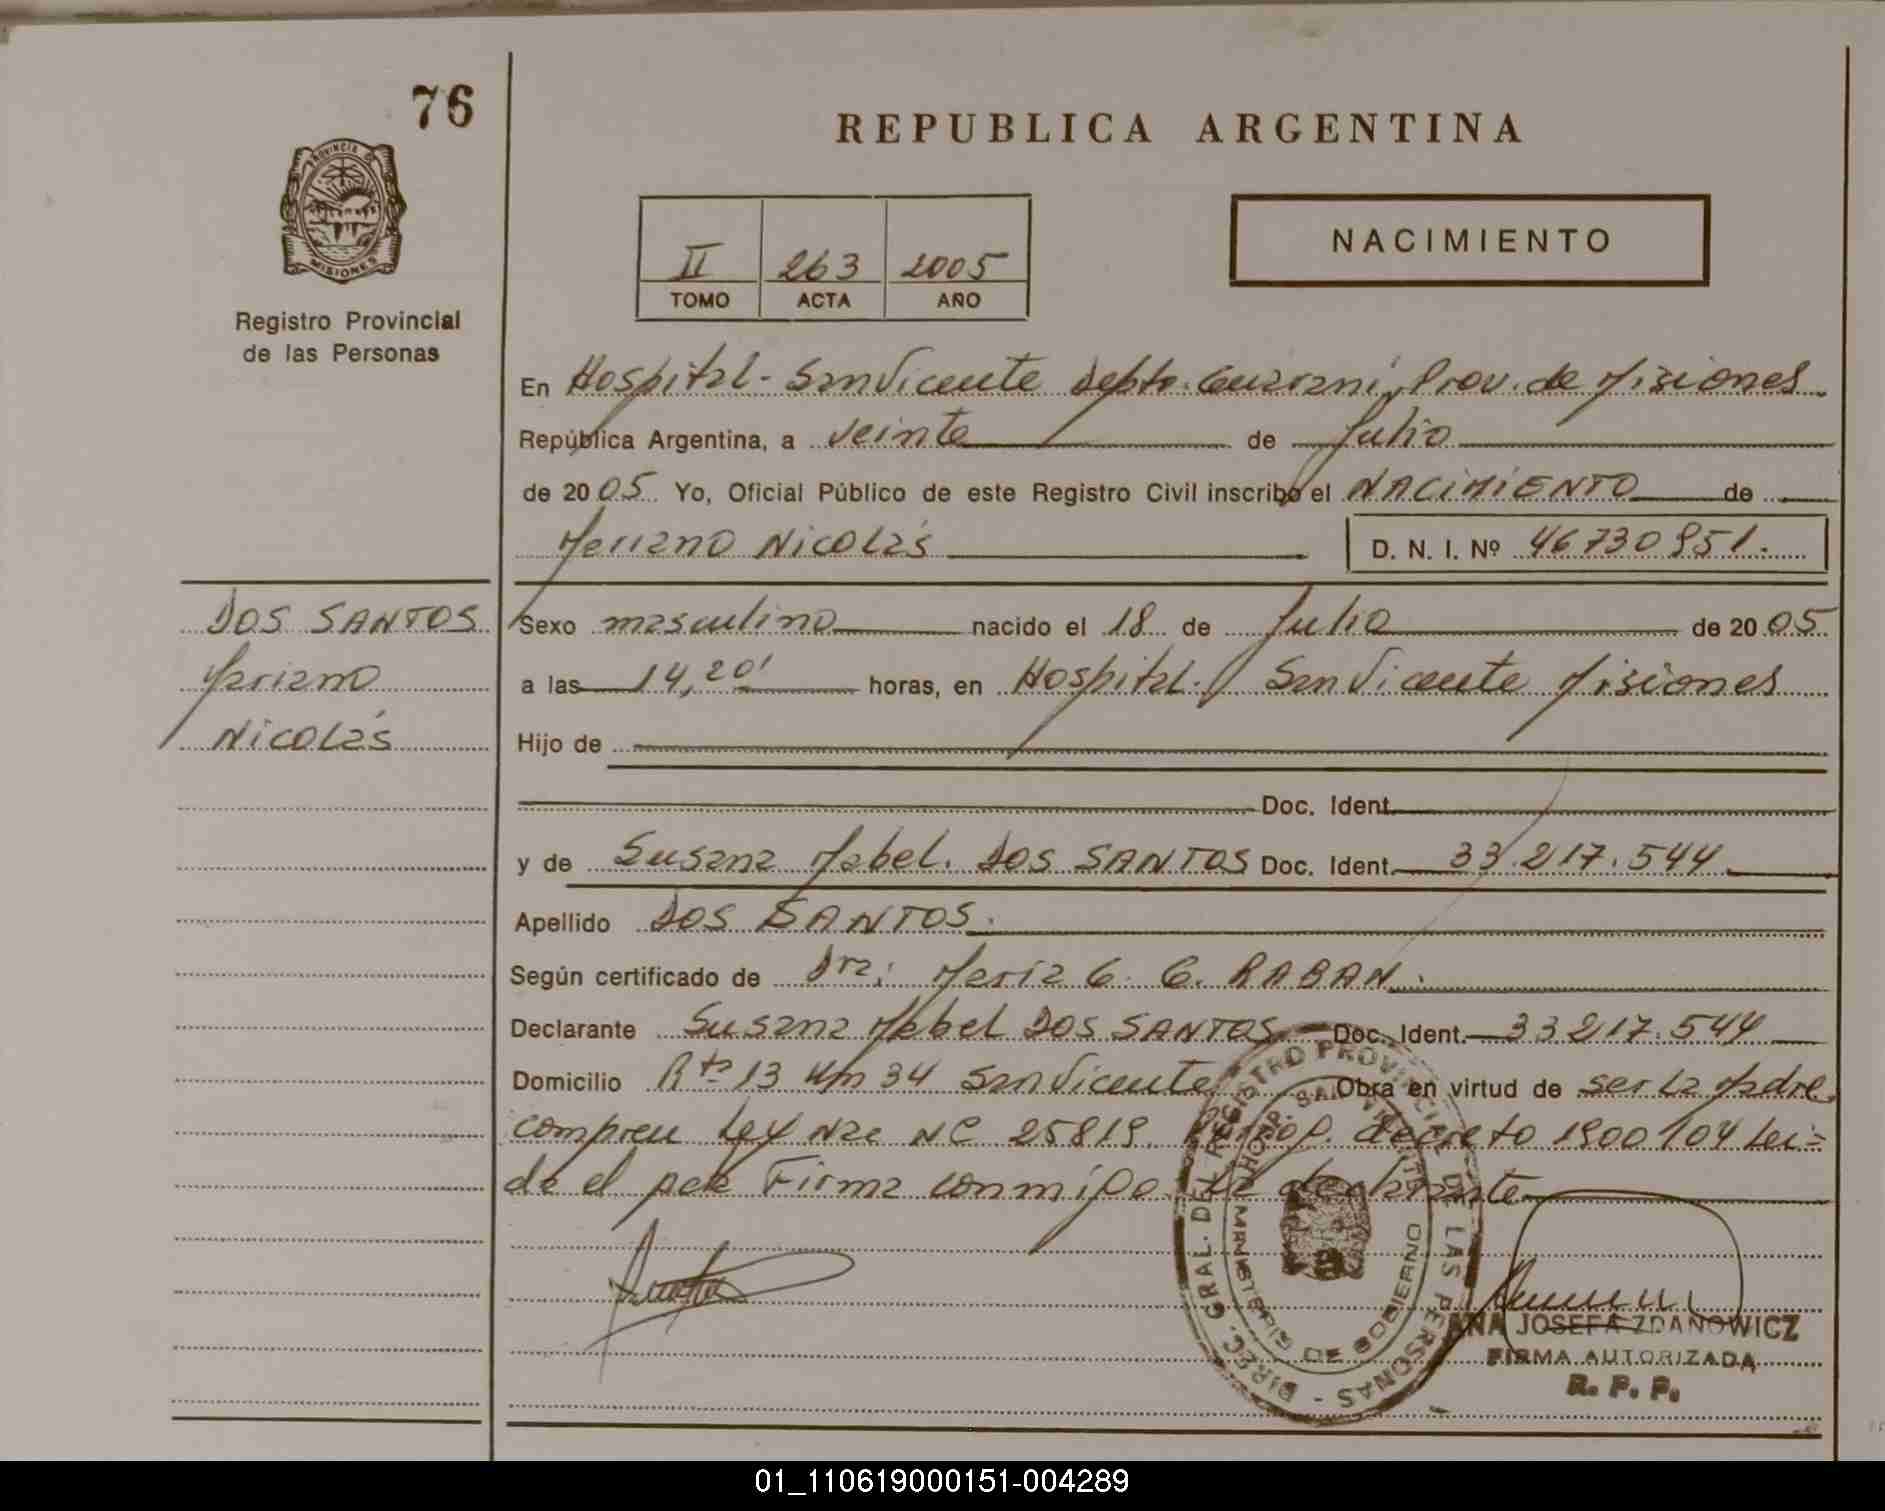 76
PROVINCIA DE
MISIONES
Registro Provincial
de las Personas
DOS SANTOS
Mariano
Nicolás
REPUBLICA ARGENTINA
II 263 2005
TOMO ACTA AÑO
NACIMIENTO
En Hospital - San Vicente Depto. Guaraní, Prov. de Misiones
República Argentina, a veinte de Julio
de 2005 Yo, Oficial Público de este Registro Civil inscribo el NACIMIENTO de
Mariano Nicolás D. N. I. Nº 46730951.
Sexo masculino nacido el 18 de Julio de 2005
a las 14,20' horas, en Hospital. San Vicente Misiones
Hijo de
Doc. Ident.
y de Susana Mabel. DOS SANTOS Doc. Ident. 33.217.544
Apellido DOS SANTOS.
Según certificado de Dra; María G. C. RABAN.
Declarante Susana Mabel DOS SANTOS Doc. Ident. 33.217.544
Domicilio Rta 13 Km 34 San Vicente Obra en virtud de ser la Madre
25819. decreto 1900/04 Lei=
da el Firma conmigo. La declarante
DIREC. GRAL. DEL REGISTRO PROVINCIAL DE LAS PERSONAS -
HOSP. SAN VICENTE
MINISTERIO DE GOBIERNO
ANA JOSEFA ZDANOWICZ
FIRMA AUTORIZADA
R. P. P.
01_110619000151-004289